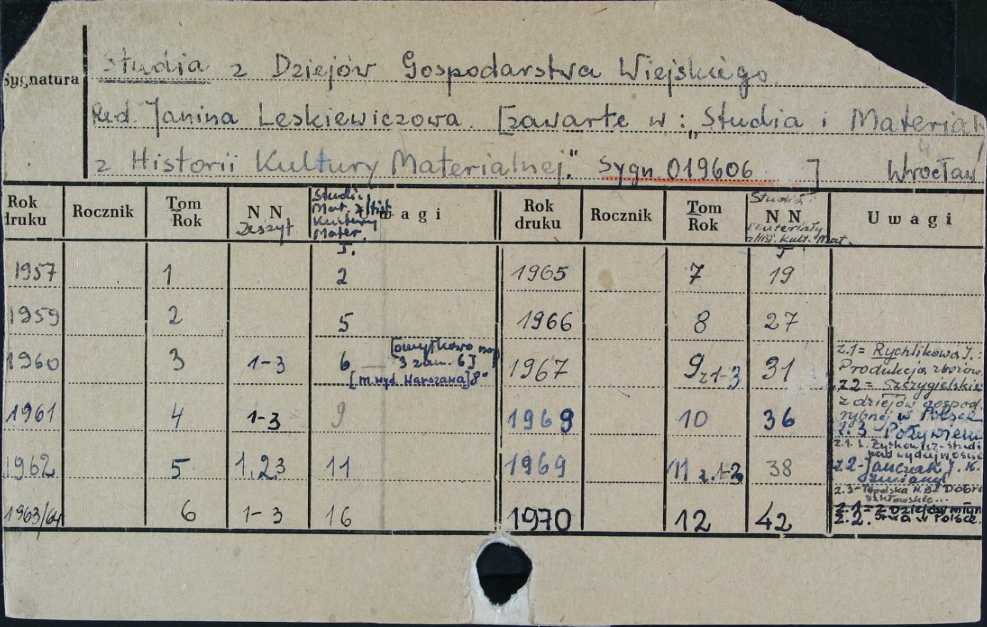 Sygnatura
Studia z Dziejów Gospodarstwa Wiejskiego
Red. Janina Leskiewiczowa. [zawarte w: „Studia i Materiał
z Historii Kultury Materialnej." Sygn 019606 ] Wrocław
Rok druku Rocznik Tom Rok N N Zeszyt Studia Mat. z Hist. Kultury Mater. Uwagi
T.
1957 1 2
1959 2 5
1960 3 1-3 6 [omyłkowo nap 3 zam. 6]
[m. wyd. Warszawa] 8°
1961 4 1-3 9
1962 5 1,2,3 11
1963/64 6 1-3 16
Rok druku Rocznik Tom Rok Studia i N N Materiały z Hist. Kult. Mat. Uwagi
T
1965 7 19
1966 8 27
1967 9 z 1-3 31
1969 10 36
1969 11 z. 1-2 38
1970 12 42
z.1= Rychlikowa I.:
Produkcja zbożow.
z 2= Szczygielski
z dziejów gospod.
rybnej w Polsce
z. 3 Pożywienie
z. 2- Janczak J. K.
z.3-Topolska M.B. Dobra
szkłowskie...
z.1= z Dziejów młyn
z.2. stwa w Polsce.